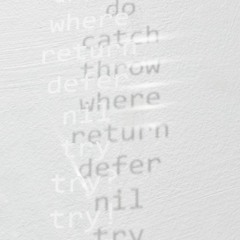 do
where
catch
return
throw
defer
where
nil
return
try
defer
try?
nil
try!
try